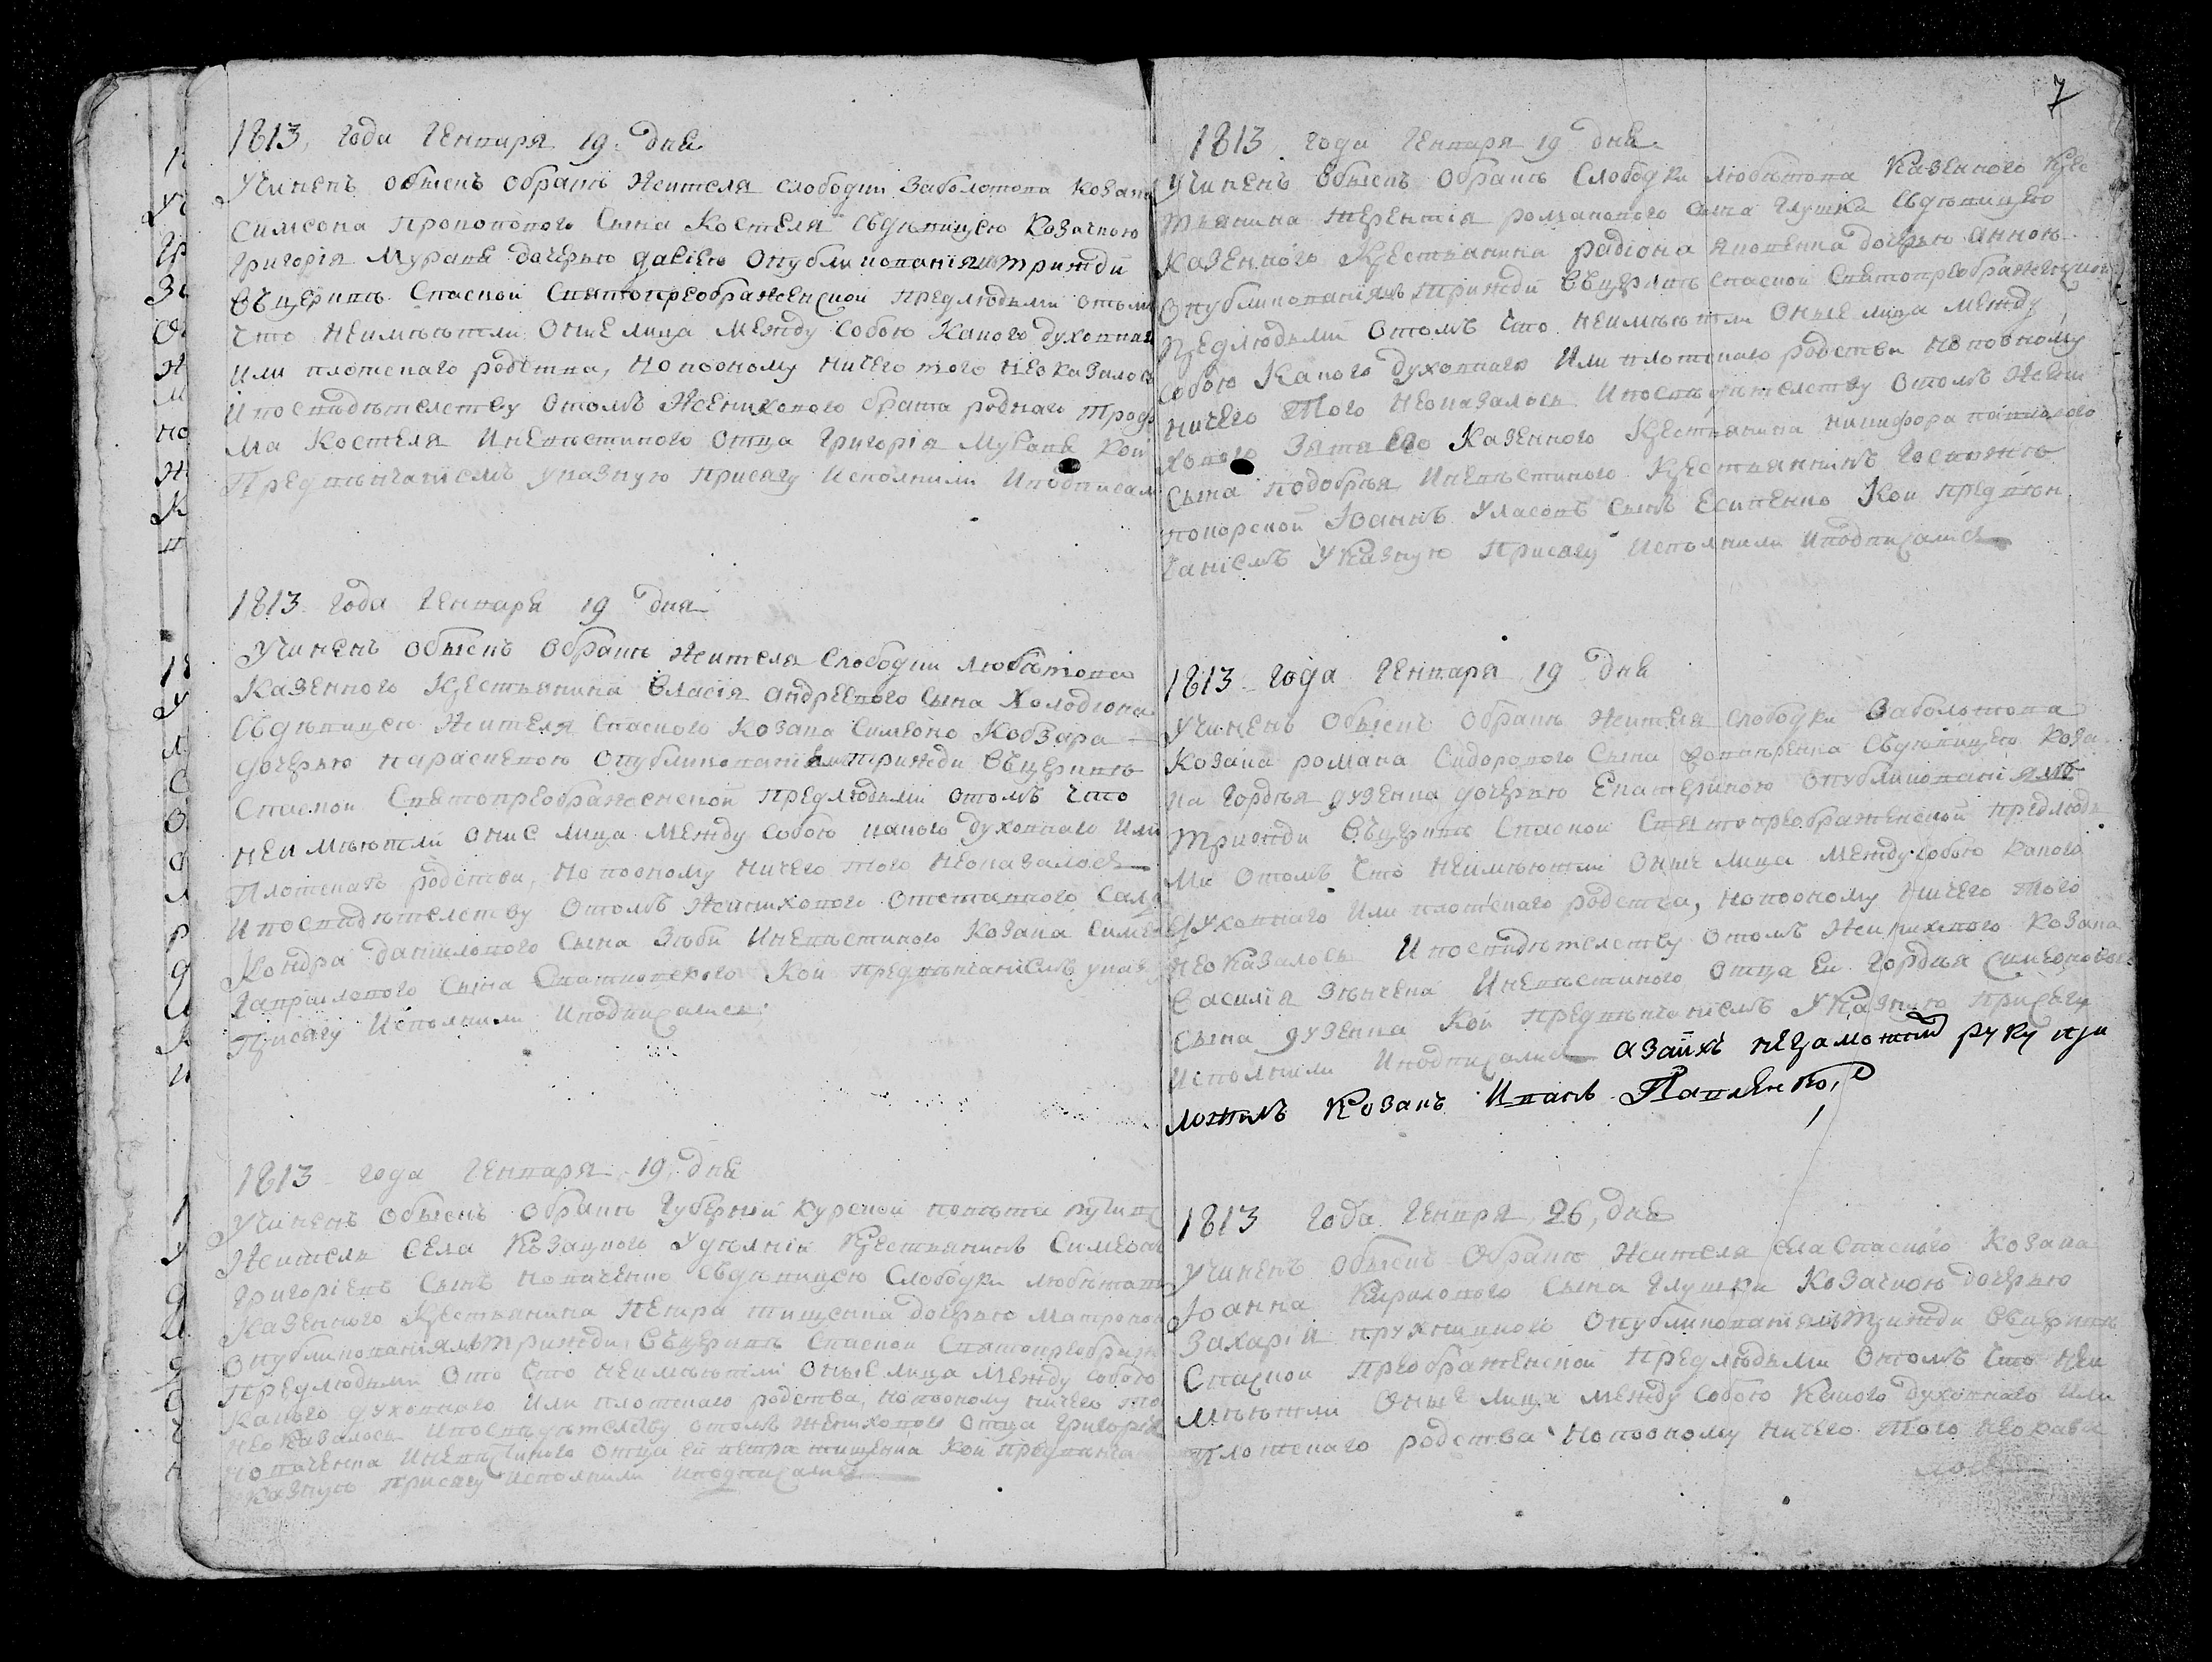 1813, года Генваря 19. дня
Учиненъ обыскъ обракѣ Жителя слободки Заболотова козака
Симеона Прокопового Сына Костеля Съдѣвицею Козачкою
Григорія дочерью Опубликованіямъ трижди
Въцерквѣ Спаской Святопреображенской предлюдьми отомъ
Что неимѣютли Оние лица между собою какого духовнаг
Или плотскаго родства, Но поономꙋ ничего того неоказалось
И посвидѣтелствꙋ Отомъ Женихового брата роднаго
ма Костеля Иневѣстиного Отца Григорія Кои
Предвѣнчаніемъ указнꙋю присягꙋ Исполнили Иподписал
1813 Года Генваря 19 дня
Учиненъ обыскъ Обракѣ Жителя Слободки Любитова
Казенного Крестьянина Власія Андреевого Сына Холодiона
Съдѣвицею Жителя Спаского Козака Симеона Кобзара
дочерью Параскевою Опубликованіямъ трижди Въцерквѣ
Спаской Святопреображенской предлюдьми Отомъ Что
Неимѣютли оние лица между собою какого духовнаго Или
Плотскаго родства, Но поономꙋ ничего того неоказалось
И посвидѣтелствꙋ Отомъ Женихового
Кондра Данилового Сына Иневѣстиного Козака Симео
Гаврилового Сына Кои предвѣнчаніемъ указ
Присягꙋ Исполнили Иподписались
1813 года Генваря 19 дня
Учиненъ Обыскъ Обракѣ Губерніи Курской повѣта
Жителя Села Козацкого Крестьянинъ Симеонъ
Григоріевъ Сынъ Съдѣвицею Слободки Любитова
Казенного Крестьянина Петра Тищенка дочерью Матроною
Опубликованіямъ Трижди Въцерквѣ Спаской Святопреображ
Предлюдьми Ото Что неимѣютли Оные лица между собою
Какого духовнаго Или плотскаго родства, но поономꙋ ничего то
неоказалось Ипосвидѣтелствꙋ отомъ Женихового Отца Григорія
Иневѣстиного Отца ей Петра Тищенка Кои предвѣнча
казнꙋю присягꙋ Исполнили Иподписались
7
1813 года Генваря 19 дня
Учиненъ Обыскъ Обракѣ Слободки Любитова Казенного Крес
тьянина Терентія романового Сына Глушка Съдѣвицею
Казенного Крестьянина радіона дочерью Анною
Опубликованіямъ трижди Въцерквѣ Спаской Святопреображенской
Предлюдьми Отомъ Что неимѣютли Оные лица между
Собою Какого духовнаго Или плотскаго родства Но поономꙋ
ничего Того неоказалось Ипосвидѣтелствꙋ Отомъ Жени
хового Зятя его Казенного Крестьянина Никифора
Сына Иневѣстиного Крестьянинъ
Іоаннъ Уласовъ Сынъ Есипенко Кои предвѣн
чаніемъ Указнꙋю Присягꙋ Исполнили Иподписались
1813 года Генваря 19 дня
Учиненъ Обыскъ Обракѣ Жителя слободки Заболотова
Козака романа Сидорового Сына Съдѣвицею Коза
ка Гордѣя дочерью Екатериною Опубликованіямъ
Трижди Въцерквѣ Спаской Святопреображенской Предлюдь
Ми Отомъ Что неимѣютли Оные лица между собою какого
духовнаго Или плотскаго родства, но поономꙋ ничего того
неоказалось Ипосвидѣтелствꙋ Отомъ Жениховего Козака
Василія Иневѣстиного Отца Ей Гордѣя Симеонового
Сына Кои предвѣнчаніемъ Указнꙋю Присягꙋ
Исполнили Иподписались азаихъ руку при
ложилъ Козакъ Иванъ Павленко,
1813 года Генваря, 26, дня
Учиненъ Обыскъ Обракѣ Жителя села Спаского Козака
Іоанна Кирилового Сына Глушка Козачкою дочерью
Захарія Опубликованіямъ Трижди Въцерквѣ
Спаской Преображенской Предлюдьми Отомъ Что Неи
мѣютли Оныѣ лица между Собою Какого духовнаго Или
Плотскаго родства Но поономꙋ ничего Того неоказа
лось